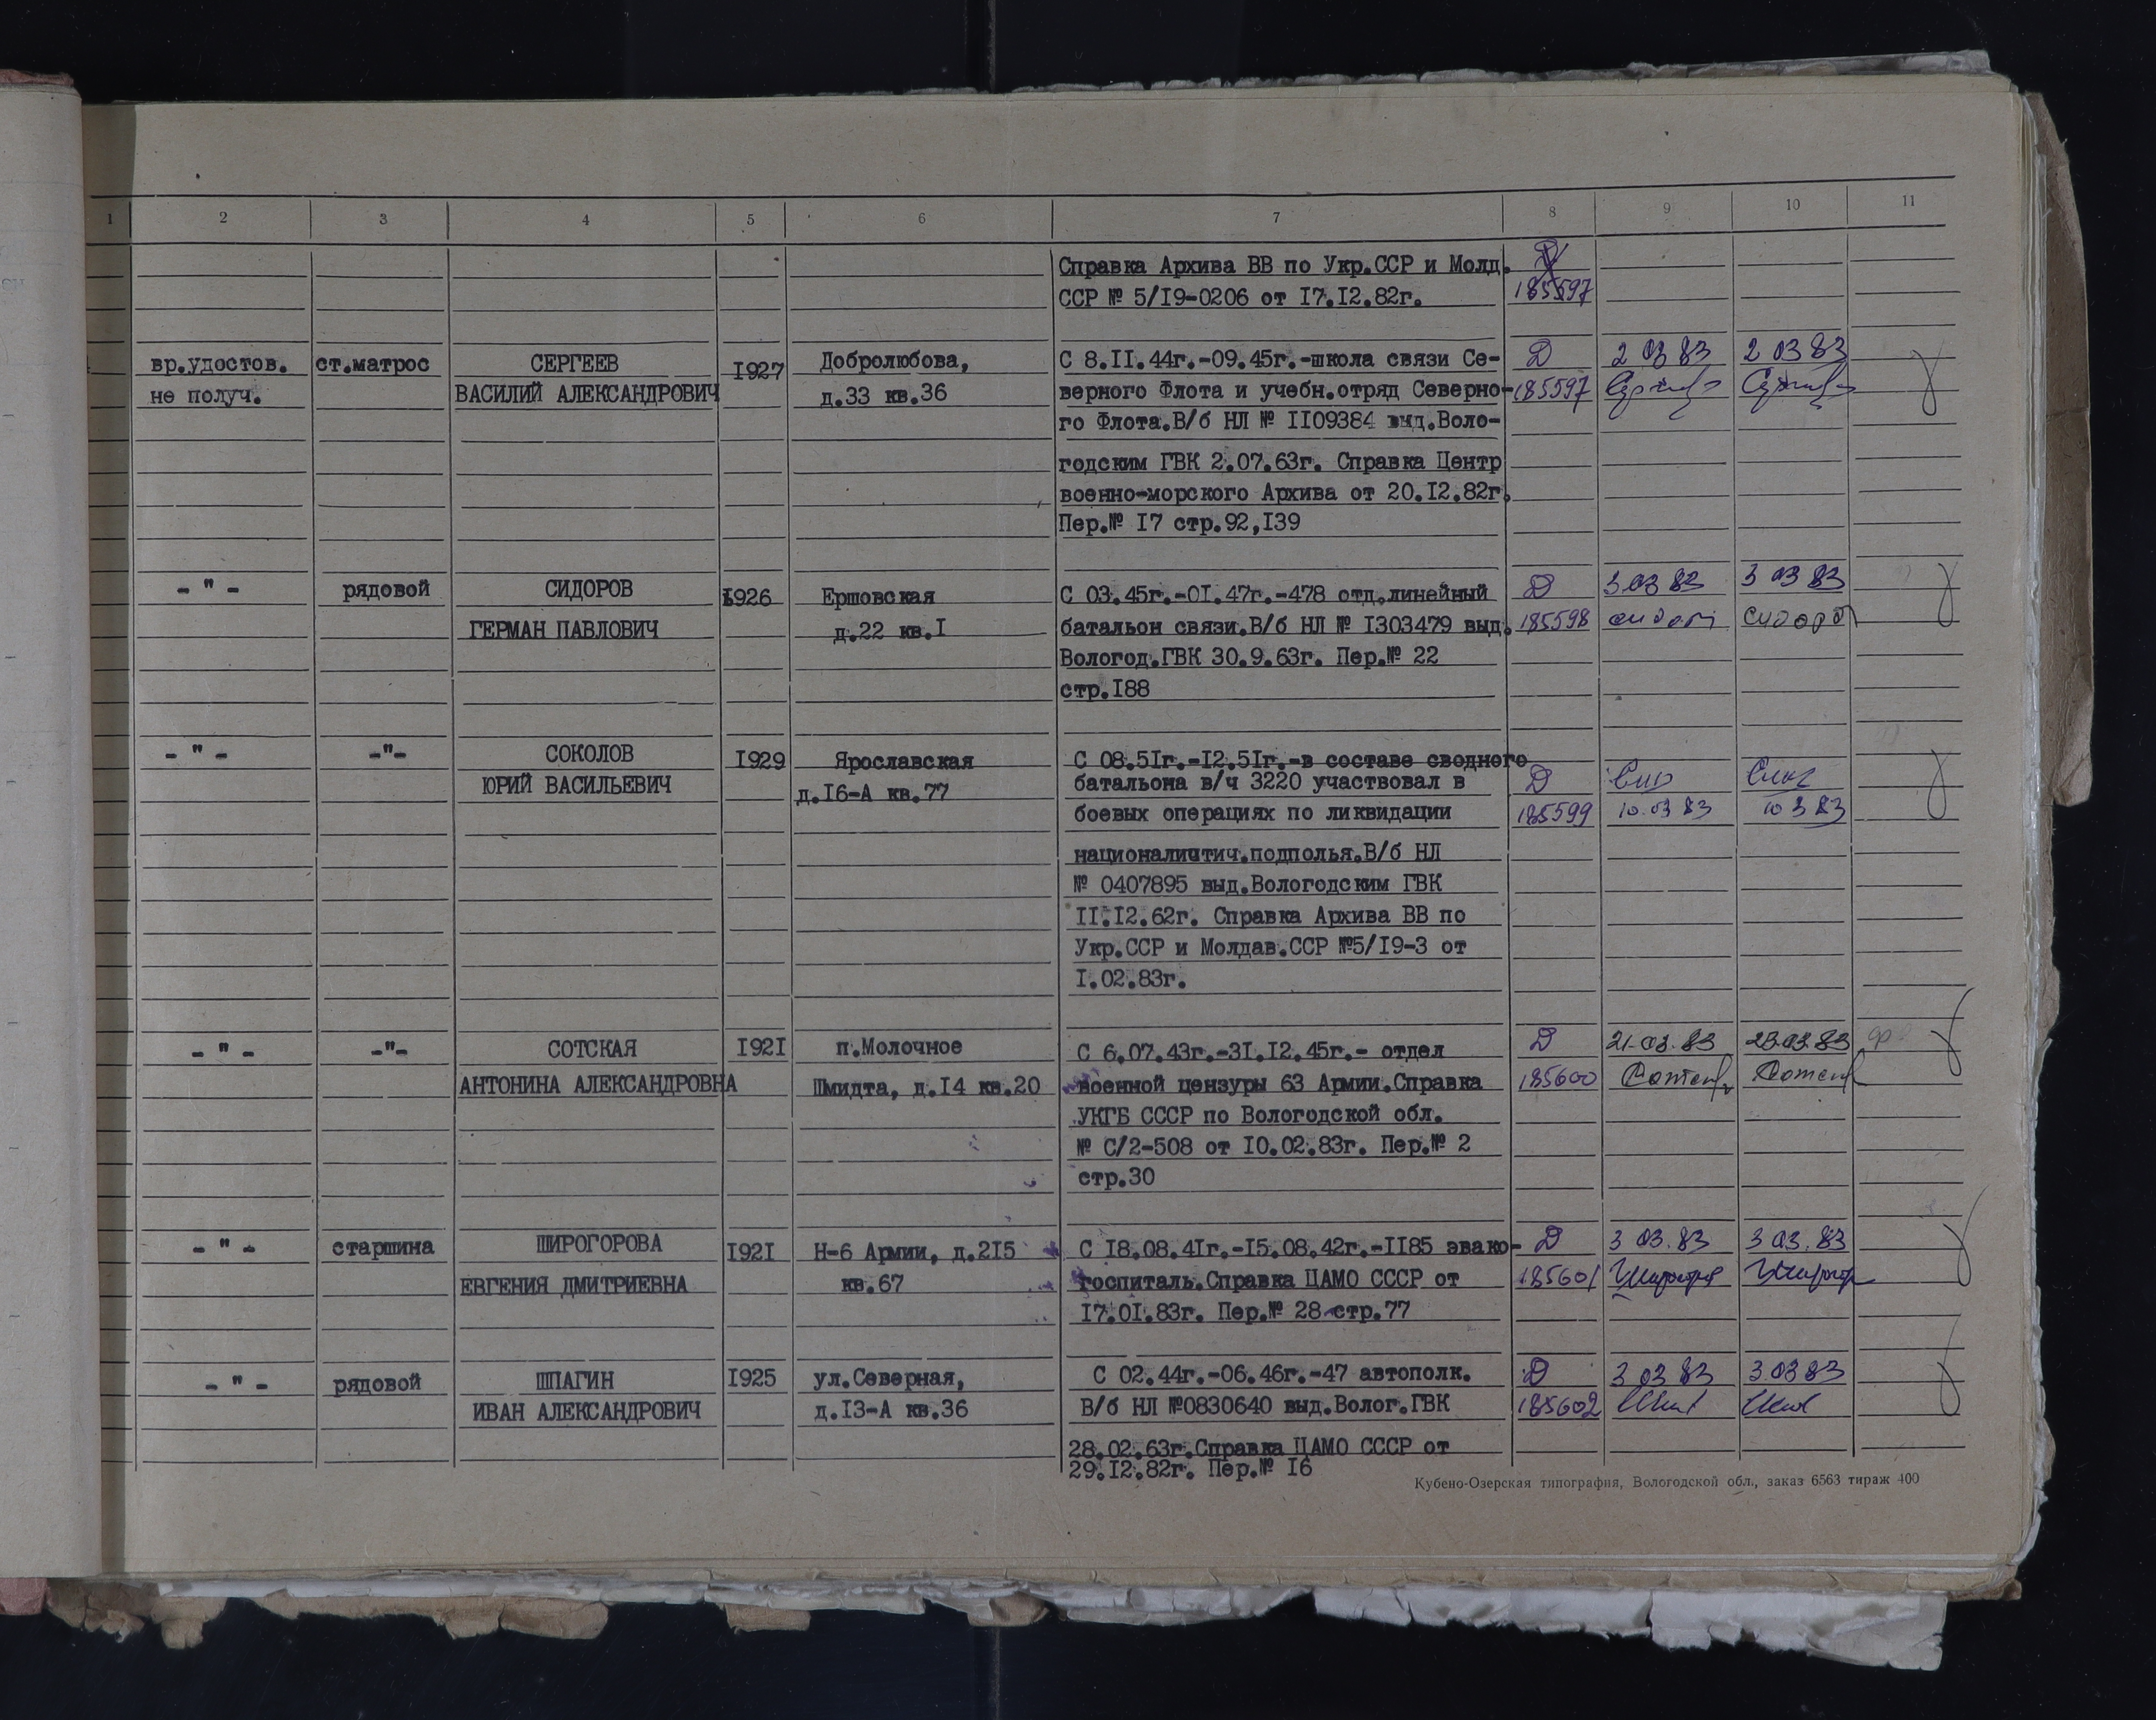 1 2 3 4 5 6 7 8 9 10 11
Справка Архива ВВ по Укр.ССР и Молд.
ССР № 5/I9-0206 от I7.I2.82г.
185597
вр.удостов.
не получ.
ст.матрос
СЕРГЕЕВ
ВАСИЛИЙ АЛЕКСАНДРОВИЧ
I927
Добролюбова,
д.33 кв.36
С 8.II.44г.-09.45г.-школа связи Се-
верного Флота и учебн.отряд Северно-
го Флота.В/б НЛ № II09384 выд.Воло-
годским ГВК 2.07.63г. Справка Центр
военно-морского Архива от 20.I2.82г.
Пер.№ I7 стр.92,I39
Д
185597
2 03 83
2 03 83
- " -
рядовой
СИДОРОВ
ГЕРМАН ПАВЛОВИЧ
I926
Ершовская
д.22 кв.I
С 03.45г.-0I.47г.-478 отд.линейный
батальон связи.В/б НЛ № I303479 выд.
Вологод.ГВК 30.9.63г. Пер.№ 22
стр.I88
Д
185598
3 03 83
3 03 83
- " -
-"-
СОКОЛОВ
ЮРИЙ ВАСИЛЬЕВИЧ
I929
Ярославская
д.I6-А кв.77
С 08.5Iг.-I2.5Iг.-в составе сводного
батальона в/ч 3220 участвовал в
боевых операциях по ликвидации
националистич.подполья.В/б НЛ
№ 0407895 выд.Вологодским ГВК
II.I2.62г. Справка Архива ВВ по
Укр.ССР и Молдав.ССР №5/I9-3 от
I.02.83г.
Д
185599
10.03 83
10 3 83
- " -
-"-
СОТСКАЯ
АНТОНИНА АЛЕКСАНДРОВНА
I92I
п.Молочное
Шмидта, д.I4 кв.20
С 6.07.43г.-3I.I2.45г.- отдел
военной цензуры 63 Армии.Справка
УКГБ СССР по Вологодской обл.
№ С/2-508 от I0.02.83г. Пер.№ 2
стр.30
Д
185600
21.03.83
23.03.83
- " -
старшина
ШИРОГОРОВА
ЕВГЕНИЯ ДМИТРИЕВНА
I92I
Н-6 Армии, д.2I5
кв.67
С I8.08.4Iг.-I5.08.42г.-II85 эвако-
госпиталь.Справка ЦАМО СССР от
I7.0I.83г. Пер.№ 28 стр.77
Д
185601
3 03.83
3 03.83
- " -
рядовой
ШПАГИН
ИВАН АЛЕКСАНДРОВИЧ
I925
ул.Северная,
д.I3-А кв.36
С 02.44г.-06.46г.-47 автополк.
В/б НЛ №0830640 выд.Волог.ГВК
28.02.63г.Справка ЦАМО СССР от
29.I2.82г. Пер.№ I6
Д
185602
3 03 83
3 03 83
Кубено-Озерская типография, Вологодской обл., заказ 6563 тираж 400